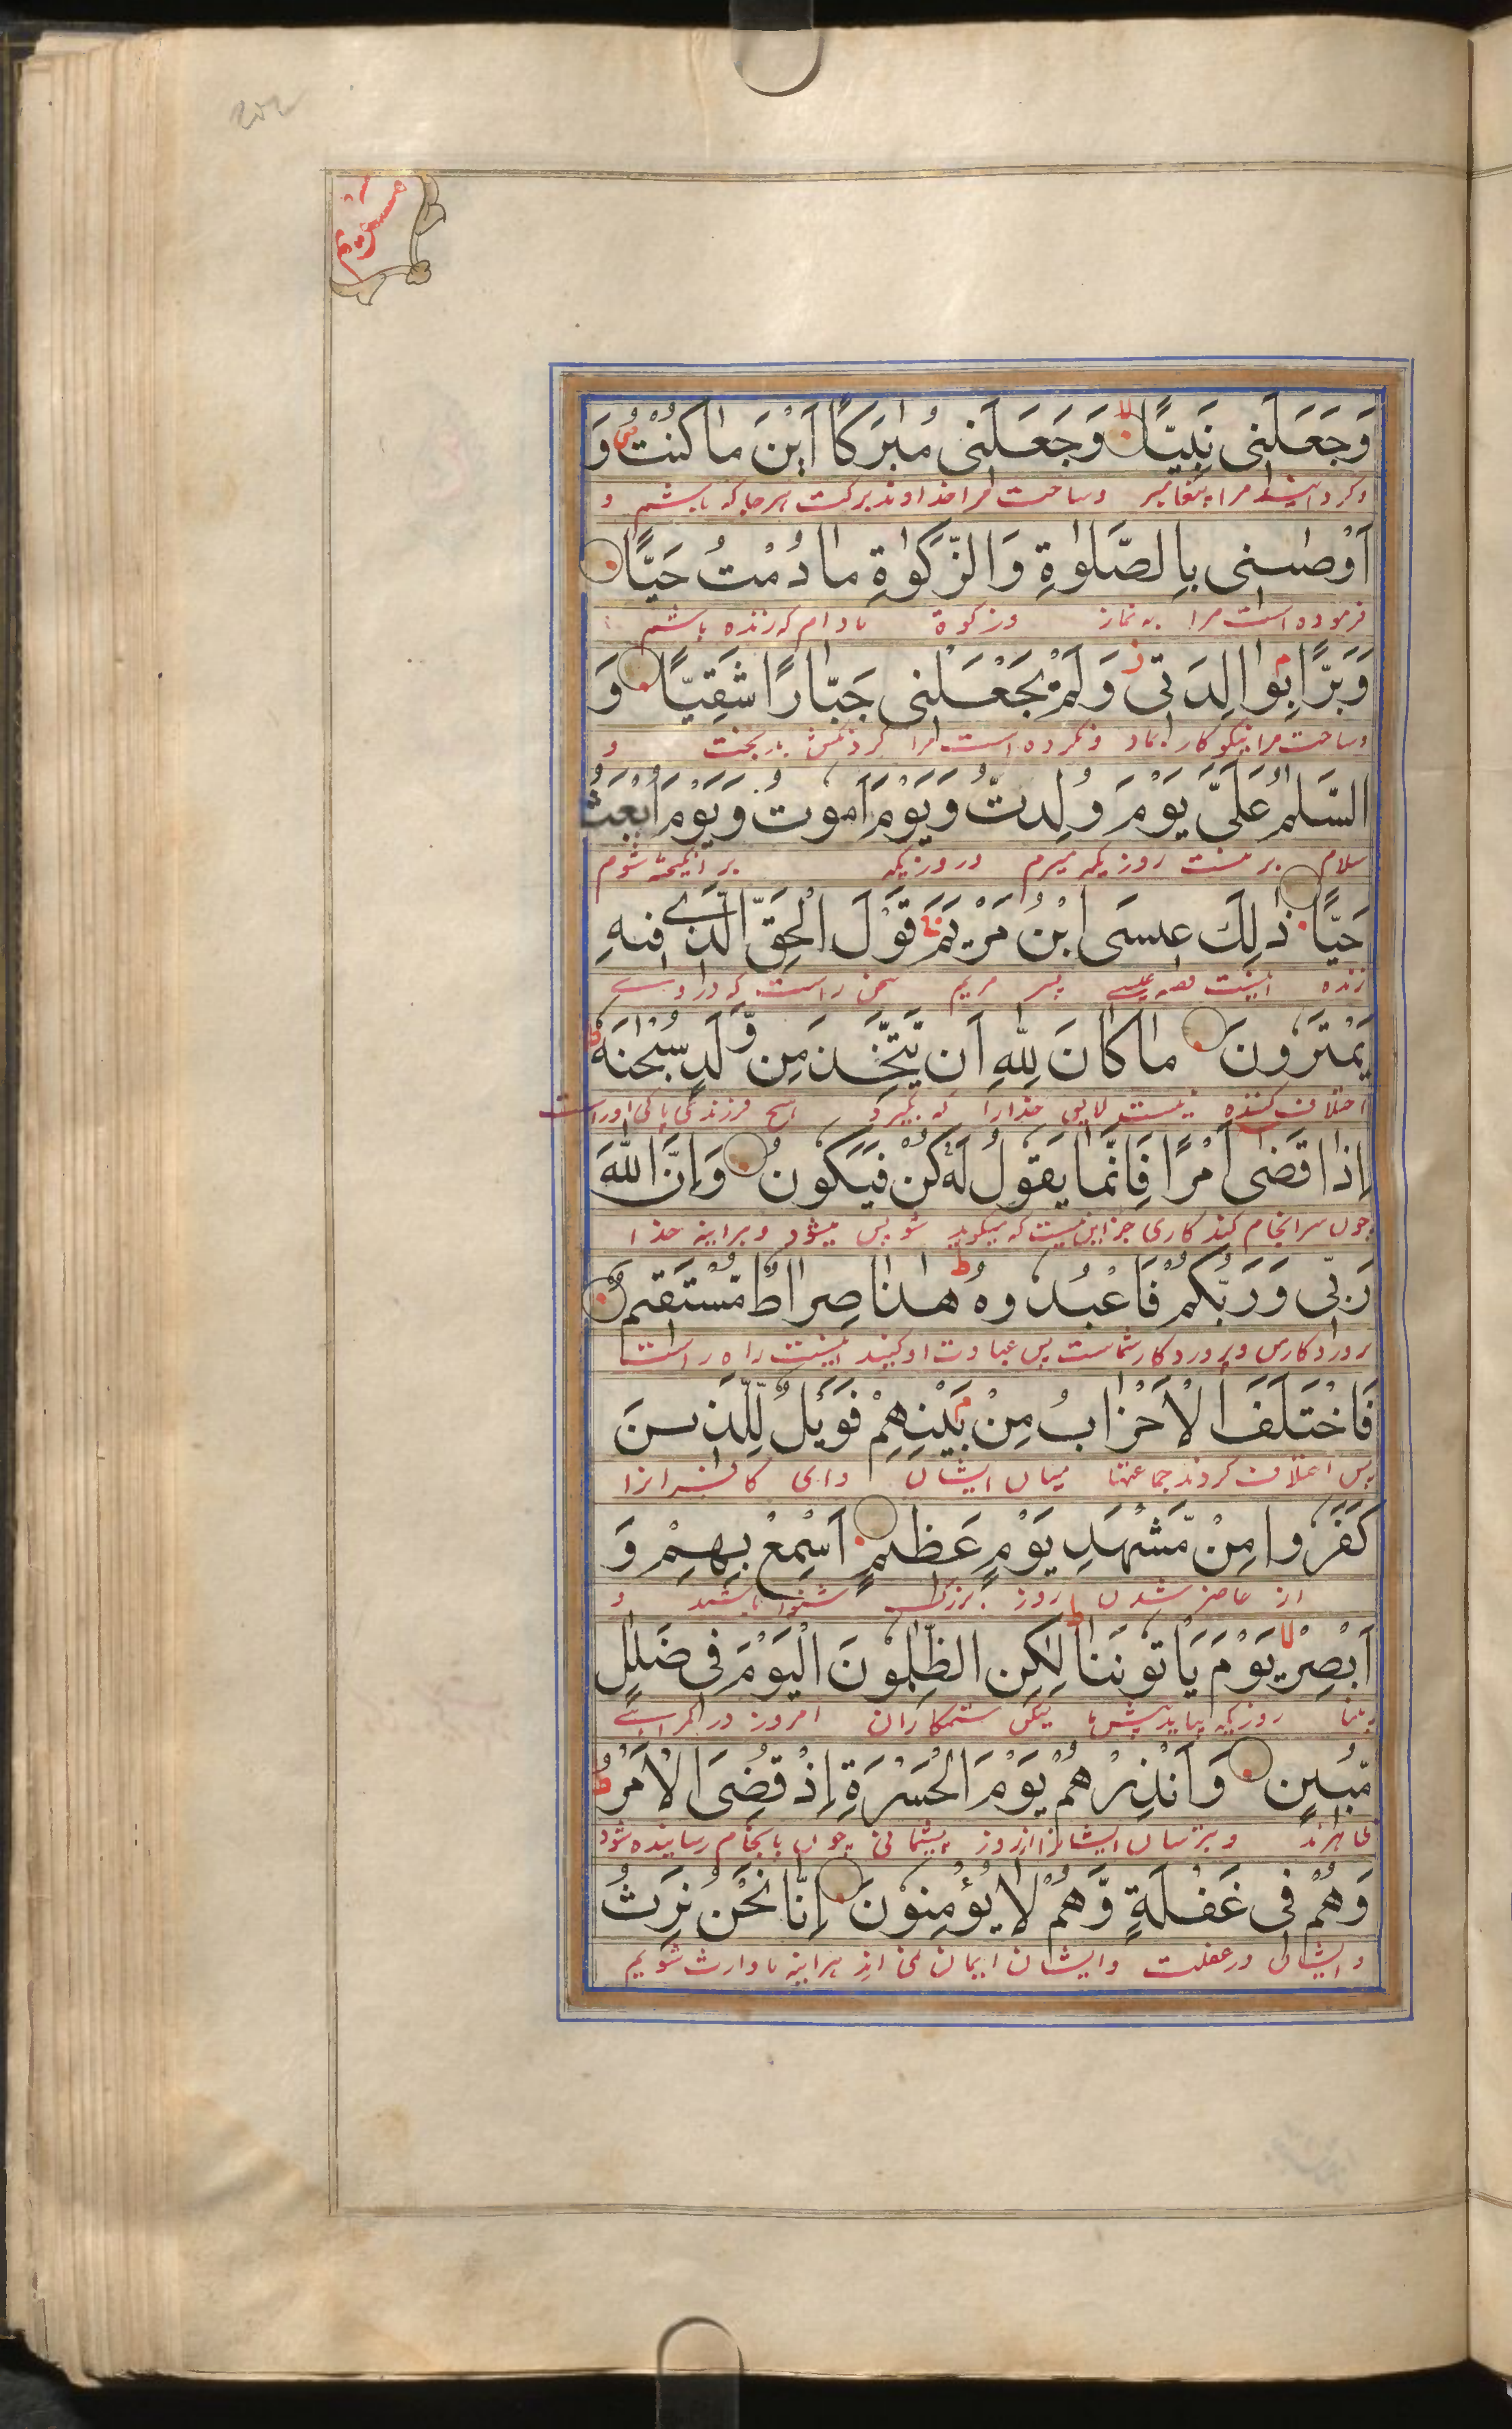 مريم
وَجَعَلَنِى نَبِيًّا وَجَعَلَنِى مُبٰرَكًا اَيْنَ مَا كُنْتُ وَ
وكردانيد مرا پيغامبر وساخت مرا خداوند بركت هرجا كه باشم و
اَوْصٰىنِى بِالصَّلٰوةِ وَالزَّكٰوةِ مَا دُمْتُ حَيًّا
فرموده است مرا به نماز وزكوة مادام كه زنده باشم
وَبَرًّا بِوَالِدَتِى وَلَمْ يَجْعَلْنِى جَبَّارًا شَقِيًّا وَ
وساخت مرا نيكوكار بماد ونكرده است مرا كردنكش بدبخت و
السَّلٰمُ عَلَىَّ يَوْمَ وُلِدتُّ وَيَوْمَ اَمُوتُ وَيَوْمَ اُبْعَثُ
سلام بر منست روزيكه ميرم وروزيكه برانكيخته شوم
حَيًّا ذٰلِكَ عِيسَى ابْنُ مَرْيَمَ قَوْلَ الْحَقِّ الَّذِى فِيهِ
زنده اينست قصه عيسى پسر مريم سخن راست كه در او
يَمْتَرُونَ مَا كَانَ لِلّٰهِ اَن يَتَّخِذَ مِن وَّلَدٍ سُبْحٰنَهٗ
اختلاف كننده نيست لايق خدارا كه بگيرد هيچ فرزند پاكى اوراست
اِذَا قَضٰى اَمْرًا فَاِنَّمَا يَقُولُ لَهٗ كُنْ فَيَكُونُ وَاِنَّ اللّٰهَ
چون سرانجام كند كارى جز اين نيست كه ميكويد شو پس ميشود وبراينه خدا
رَبِّى وَرَبُّكُمْ فَاعْبُدُوهُ هٰذَا صِرَاطٌ مُّسْتَقِيمٌ
پروردكارمن وپروردكار شماست پس عبادت او كنيد اينست راه راست
فَاخْتَلَفَ الْاَحْزَابُ مِنْ بَيْنِهِمْ فَوَيْلٌ لِّلَّذِينَ
پس اختلاف كردند جماعتها ميان ايشان واى كافرانرا
كَفَرُوا مِنْ مَّشْهَدِ يَوْمٍ عَظِيمٍ اَسْمِعْ بِهِمْ وَ
از حاضر شدن روز بزرك شنوا باشند و
اَبْصِرْ يَوْمَ يَأتُونَنَا لٰكِنِ الظّٰلِمُونَ الْيَوْمَ فِى ضَلٰلٍ
بينا روزيكه بيايد پيش ما ليكن ستمكاران امروز در كمراهى
مُّبِينٍ وَاَنْذِرْهُمْ يَوْمَ الْحَسْرَةِ اِذْ قُضِىَ الْاَمْرُ
ظاهرند وبترسان ايشانرا از روز پشيمانى چون بانجام رسانيده شود
وَهُمْ فِى غَفْلَةٍ وَّهُمْ لَا يُؤْمِنُونَ اِنَّا نَحْنُ نَرِثُ
وايشان در غفلت وايشان ايمان نمى ارند هراينه ما وارث شويم